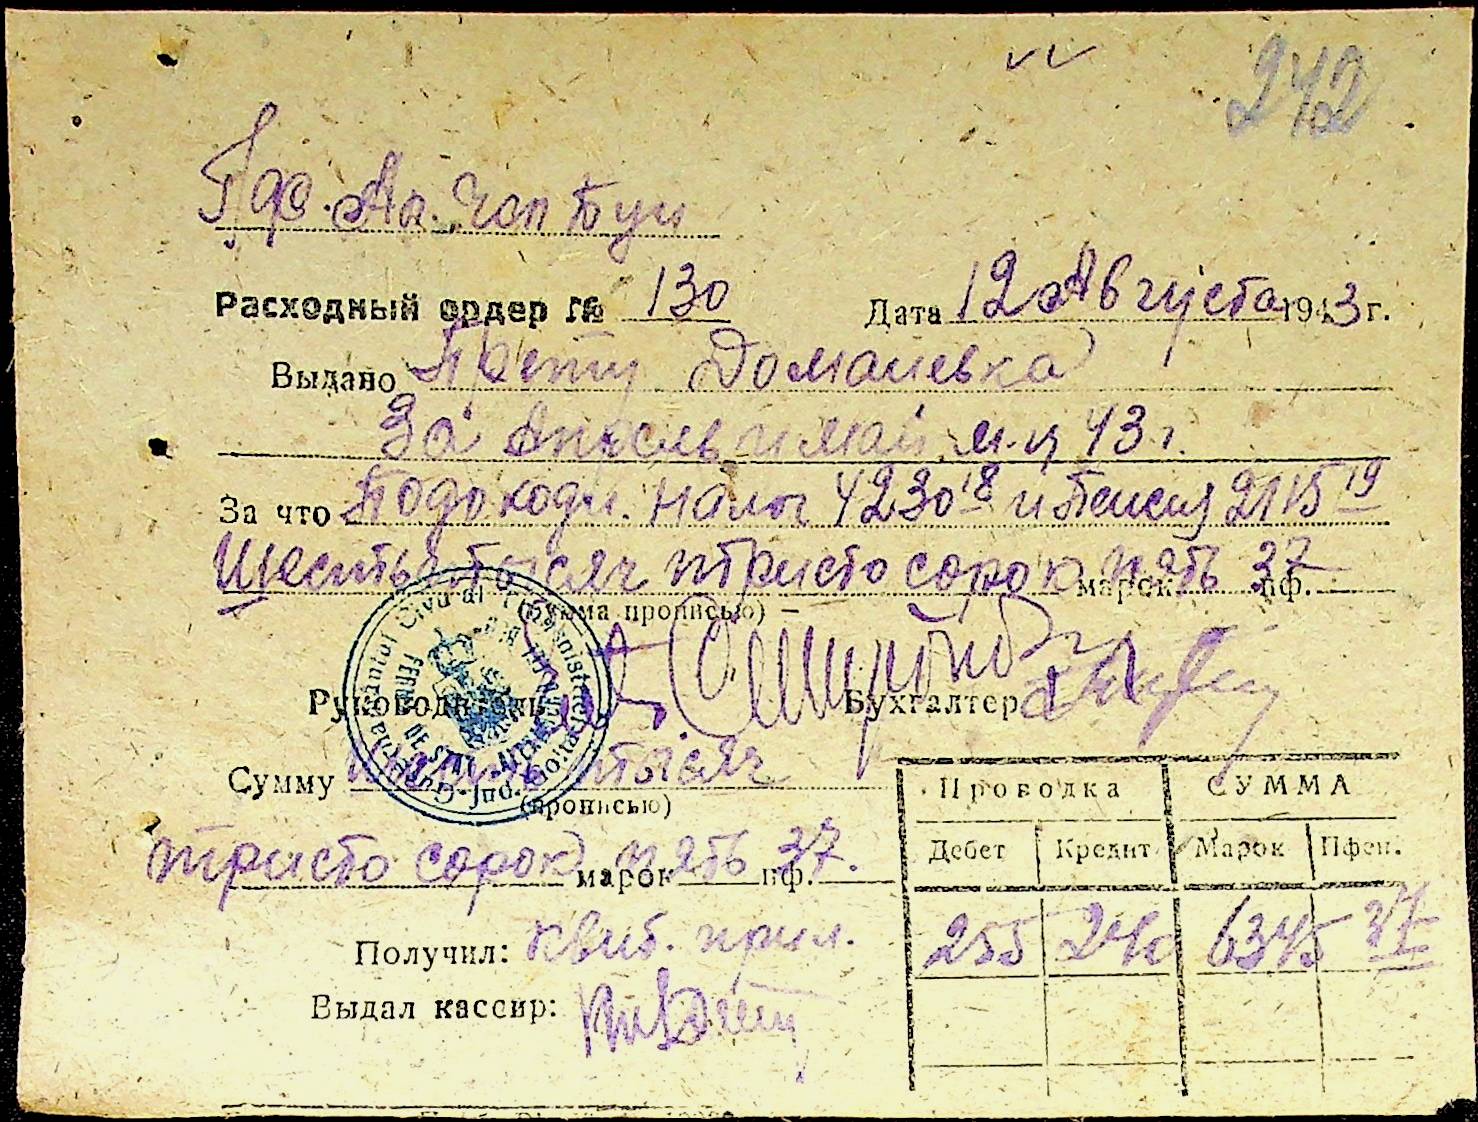 242
Расходный ордер № 130 Дата 12 Августа 1943 г.
Выдано Прету Доманевка
За Апрель и май м-ц 43 г.
За что Подоходн. налог 4230 18 и Пенсия 2115 19
Шесть тысяч триста сорок марок пять 37 пф.
(Сумма прописью)
Руководитель Бухгалтер
Сумму шесть тысяч
(прописью)
триста сорок марок пять пф. 37.
Получил: квит. прил.
Выдал кассир:
Проводка СУММА
Дебет Кредит Марок Пфен.
255 240 6345 37